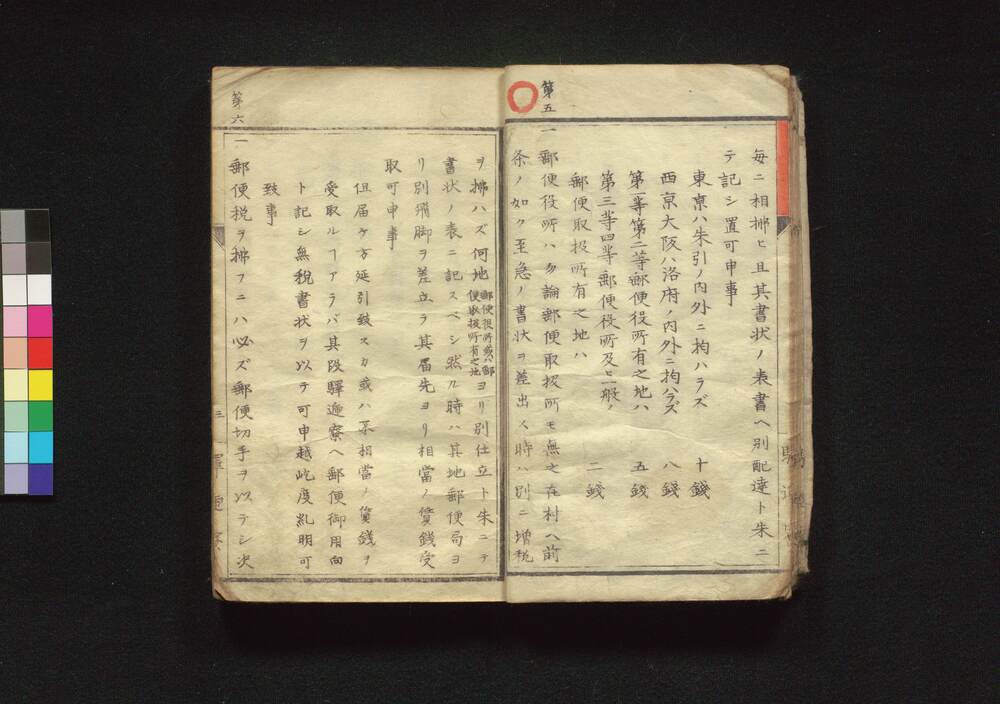 毎ニ相拂ヒ且其書状ノ表書ヘ別配達ト朱ニ
テ記シ置可申事
東京ハ朱引ノ内外ニ拘ハラズ 十錢
西京大阪ハ洛府ノ内外ニ拘ハラズ 八錢
第一等第二等郵便役所有之地ハ 五錢
第三等四等郵便役所及ヒ一般ノ 二錢
郵便取扱所有之地ハ
第五
一郵便役所ハ勿論郵便取扱所モ無之在村ヘ前
条ノ如ク至急ノ書状ヲ差出ス時ハ別ニ増税
ヲ拂ハズ何地郵便役所或ハ郵便取扱所有之地ヨリ別仕立ト朱ニテ
書状ノ表ニ記スベシ然ル時ハ其地郵便局ヨ
リ別飛脚ヲ差立ラ其届先ヨリ相當ノ賃錢受
取可申事
但届ケ方延引致スカ或ハ不相當ノ賃錢ヲ
受取ルヿアラバ其段驛逓寮ヘ郵便御用向
ト記シ無税書状ヲ以テ可申越屹度糺明可
致事
第六
一郵便税ヲ拂フニハ必ズ郵便切手ヲ以テシ决
三